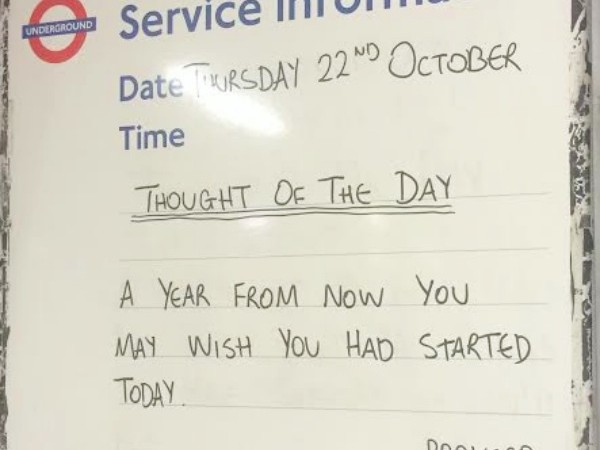 UNDERGROUND
Service
Date THURSDAY 22ND OCTOBER
Time
THOUGHT OF THE DAY
A YEAR FROM NOW YOU
MAY WISH YOU HAD STARTED
TODAY.